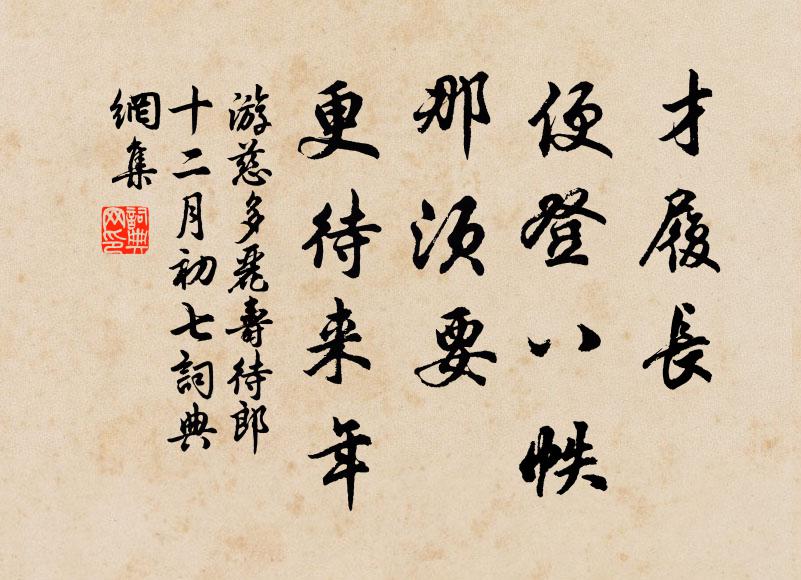 才履長
便登八帙
那須要
更待来年
游慈多麗壽待郎
十二月初七詞典
網集
詞典网印